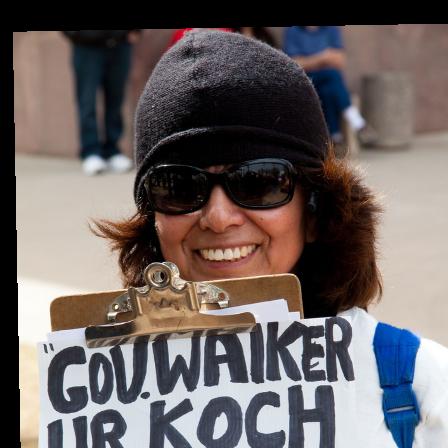 "GOV. WALKER
UR KOCH